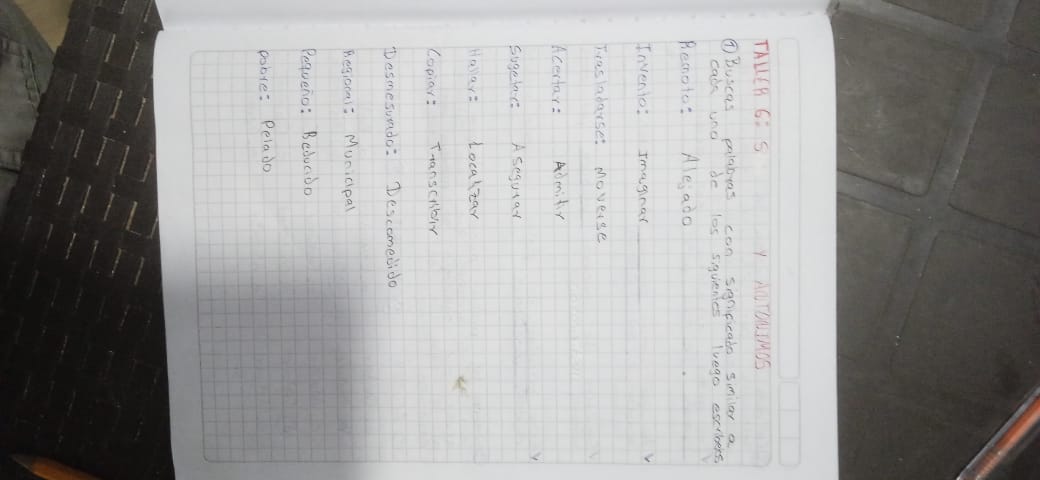 TALLER 6: S Y ANTONIMOS
① Buscas palabras con significado similar a
cada uno de los siguientes luego escribers
Remoto: Alejado
Invento: Imaginar
Trasladarse: moverse
Acertar: Admitir
Sugetar: Asegurar
Hallar: Localizar
Copiar: Transcribir
Desmesurado: Descomedido
Regional: Municipal
Pequeño: Reducido
pobre: Pelado